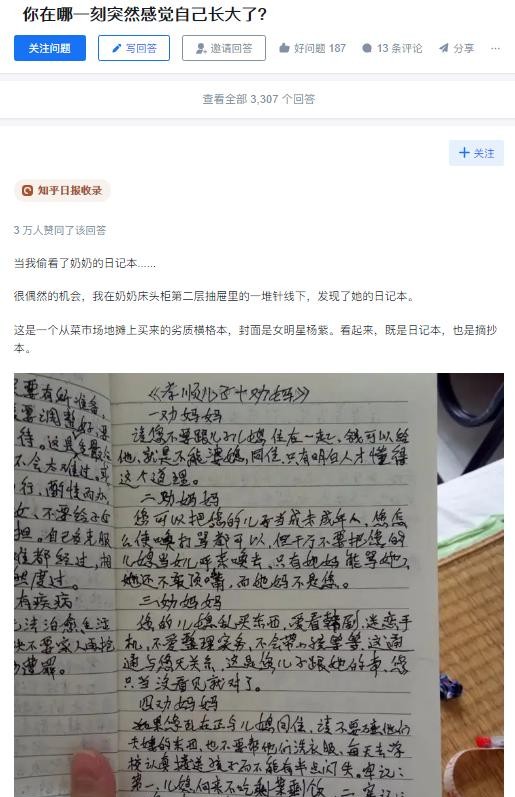 你在哪一刻突然感觉自己长大了?
关注问题
写回答
邀请回答
好问题 187
13 条评论
分享
···
查看全部 3,307 个回答
+ 关注
知乎日报收录
3 万人赞同了该回答
当我偷看了奶奶的日记本......
很偶然的机会，我在奶奶床头柜第二层抽屉里的一堆针线下，发现了她的日记本。
这是一个从菜市场地摊上买来的劣质横格本，封面是女明星杨紫。看起来，既是日记本，也是摘抄
本。
《孝顺儿子十劝妈妈》
一劝妈妈
请您不要跟儿子儿媳住在一起，钱可以给
他，就是不能婆媳同住，只有明白人才懂得
这个道理。
二劝妈妈
您可以把您的儿子当成未成年人，您怎
么使唤打骂都可以，但千万不要把您的
儿媳当女儿呼来唤去，只有她妈能骂她，
她还不敢顶嘴，而她妈不是您。
三劝妈妈
您的儿媳乱买东西，爱看韩剧，迷恋手
机，不爱整理家务，不会带小孩等等，这通
通与您无关系，这是您儿子跟她的事，您
只当没看见就对了。
四劝妈妈
如果您现在正与儿媳同住，请不要碰他们
夫妻的东西，也不要帮他们洗衣服，每天去学
校认真接送孩子而不能有半点闪失。牢记：
第一，儿媳何来不吃剩菜剩饭，二牢记：